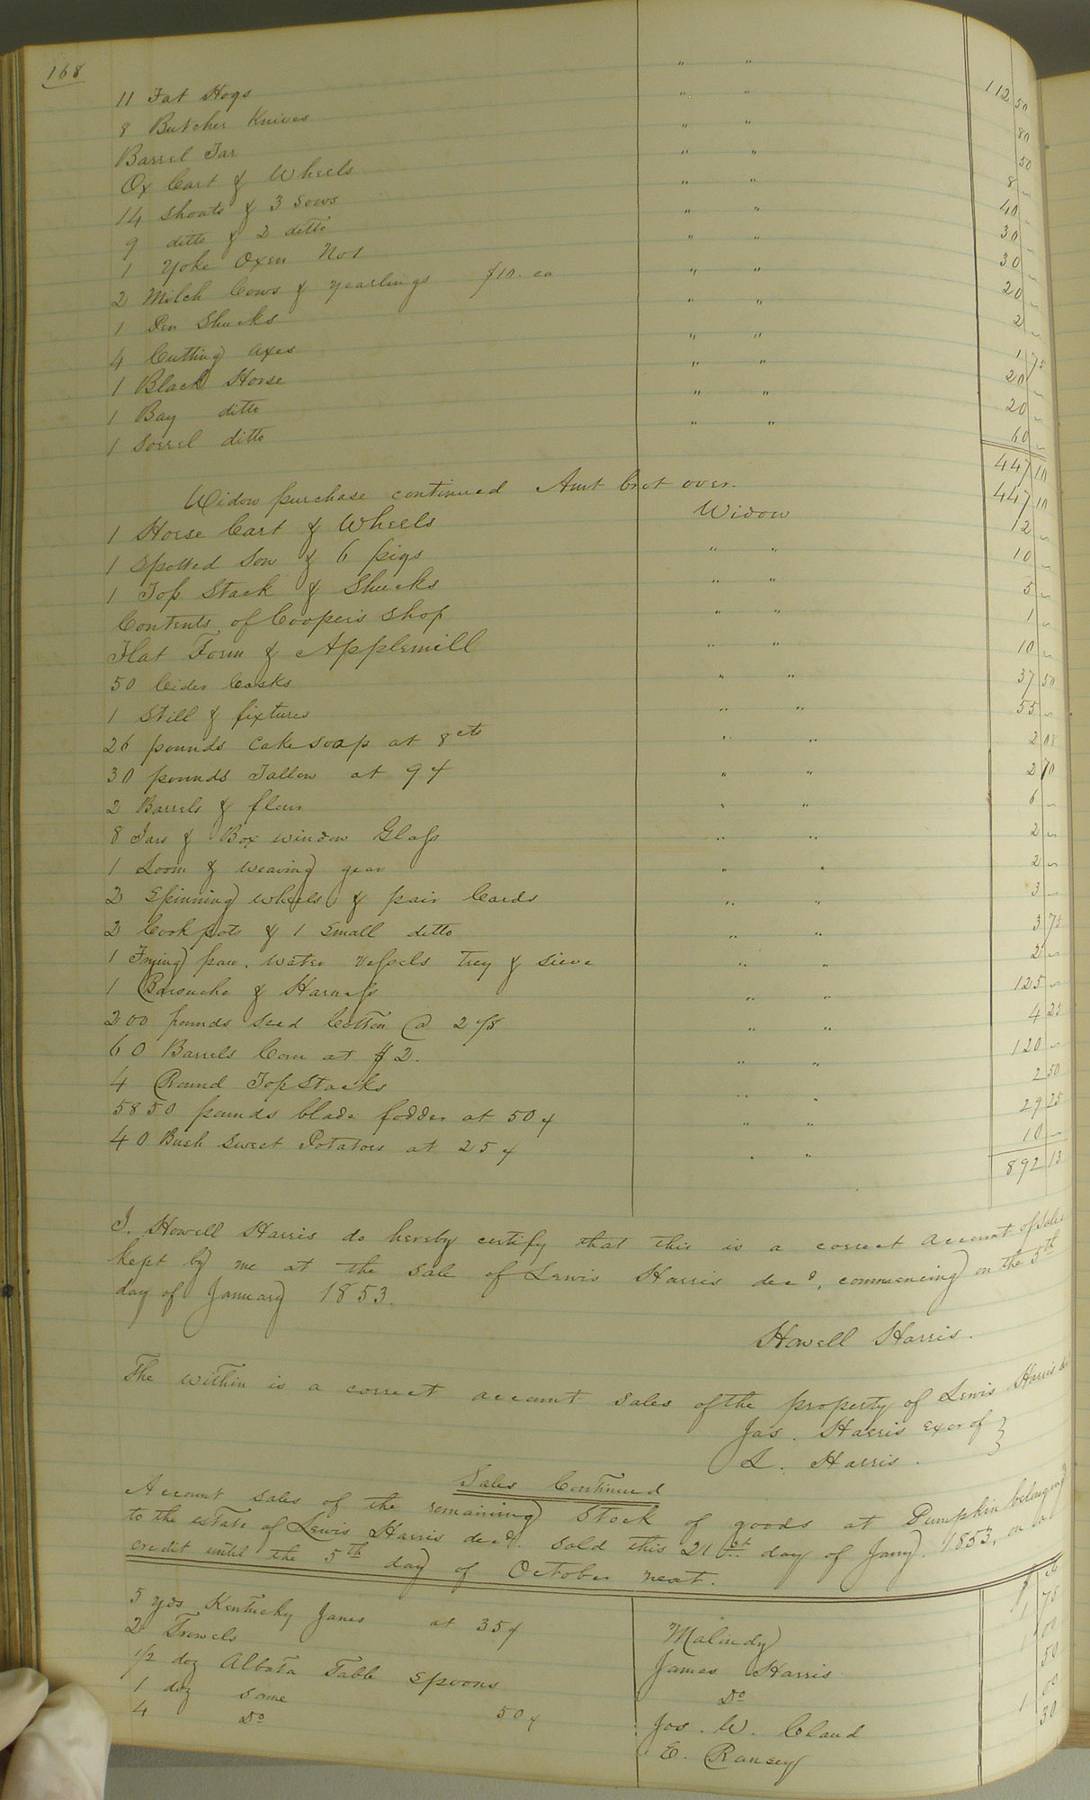 168
11 Fat Hogs " " 112 50
8 Butcher Knives " " 80
Barrel Tar " " 50
Ox Cart & Wheels " " 8 —
14 Shoats & 3 Sows " " 40 —
9 ditto & 2 ditto " " 30 —
1 Yoke Oxen No 1 " " 30 —
2 Milch Cows & yearlings $10. ea " " 20 —
1 Pen Shucks " " 2 —
4 Cutting axes " " 1 75
1 Black Horse " " 20 —
1 Bay ditto " " 20 —
1 Sorrel ditto " " 60 —
447 10
Widow purchase continued Amt brot over. 447 10
1 Horse Cart & Wheels Widow 12 —
1 Spotted Sow & 6 pigs " " 10 —
1 Top Stack & Shucks " " 5 —
Contents of Coopers Shop " " 1 —
Flat Form & Applemill " " 10 —
50 Cider Casks " " 37 50
1 Still & fixtures " " 55 —
26 pounds Cake soap at 8 cts " " 2 08
30 pounds Tallow at 9 ¢ " " 2 70
2 Barrels & flour " " 6 —
8 Jars & Box window Glass " " 2 —
1 Loom & weaving gear " " 2 —
2 Spinning wheels & pair Cards " " 3 —
2 Cook pots & 1 small ditto " " 3 75
1 Frying pan, water vessels trey & sieve " " 2 —
1 Barouche & Harness " " 125 —
200 pounds seed Cotton @ 2 1/8 " " 4 25
60 Barrels Corn at $2. " " 120 —
4 Round Top Stacks " " 2 50
5850 pounds blade fodder at 50 ¢ " " 29 25
40 Bush Sweet Potatoes at 25 ¢ " " 10 —
892 13
I. Howell Harris do hereby certify that this is a correct account of sales
kept by me at the sale of Lewis Harris decd, commencing on the 5th
day of January 1853.
Howell Harris.
The within is a correct account sales of the property of Lewis Harris
Jas. Harris Exor of }
L. Harris.
Sales Continued
Account sales of the remaining Stock of goods at Pumpkin belonging
to the estate of Lewis Harris decd. Sold this 21st day of Jany. 1853, on a
credit until the 5th day of October next.
5 yds Kentucky Janes at 35 ¢ Malindy 1 75
2 Trowels James Harris 1 00
1/2 doz Albata Table Spoons Do 50
1 doz same 50 ¢ Jos. W. Claud 1 00
4 Do E. Ransey 30